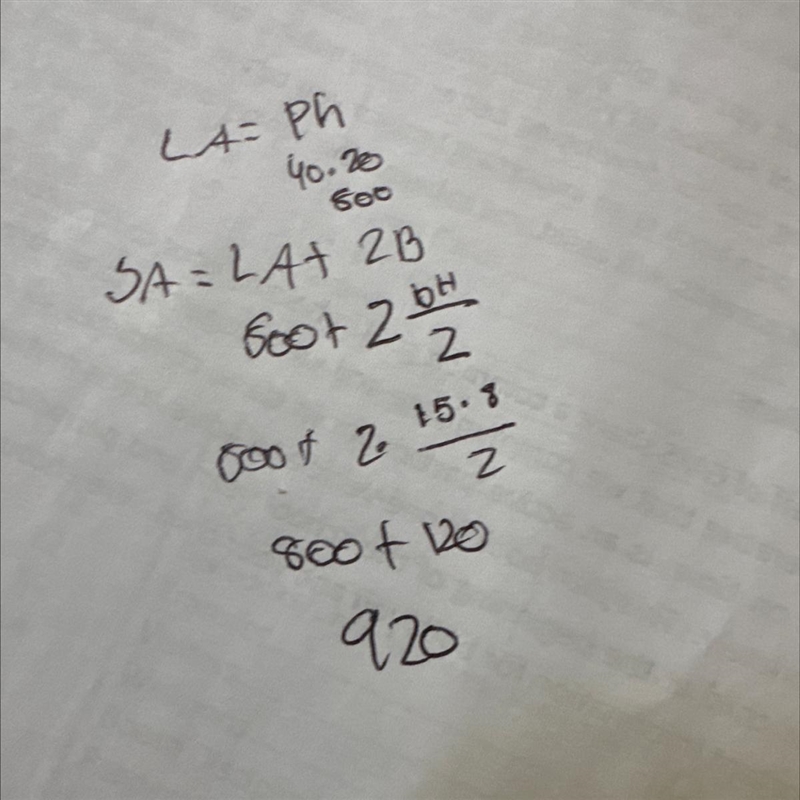 LA = Ph
40.20
800
SA = LA + 2B
800 + 2 bH/2
800 + 2. 15.8/2
800 + 120
920